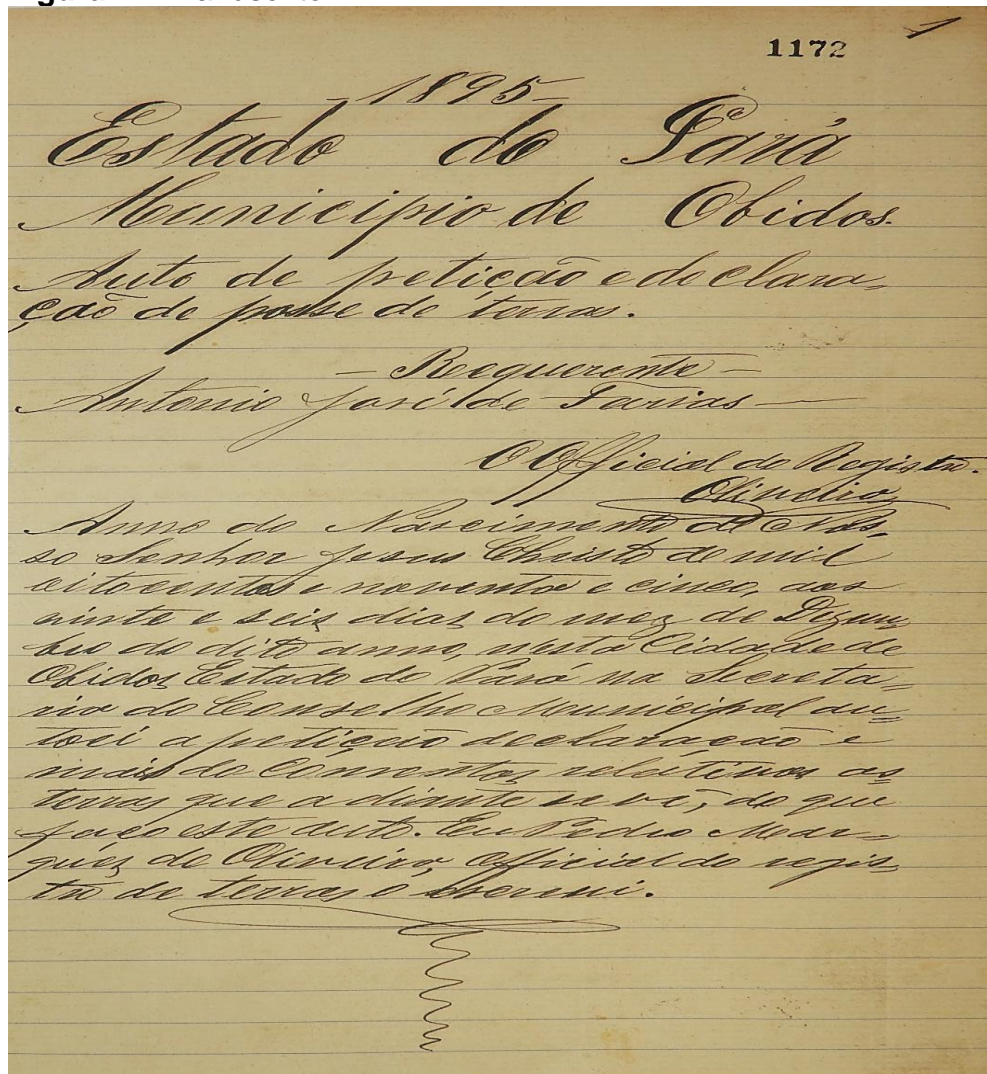 1172
1
- 1895 -
Estado do Pará
Municipio de Obidos.
Auto de petição e declara,
ção de posse de terras.
- Requerente -
Antonio José de Farias -
O Official do Registro.
Oliveira
Anno do Nascimento de Nos,
so Senhor Jesus Christo de mil
oitocentos e noventa e cinco, aos
vinte e seis dias do mez de Dezem,
bro do dito anno, nesta Cidade de
Obidos, Estado do Pará na Secreta,
ria do Conselho Municipal au,
toei a petição declaração e
mais documentos relativos as
terras que a diante se vê, do que
faço este auto. Eu Pedro Mar,
ques de Oliveira, official do regis,
tro de terras o escrevi.